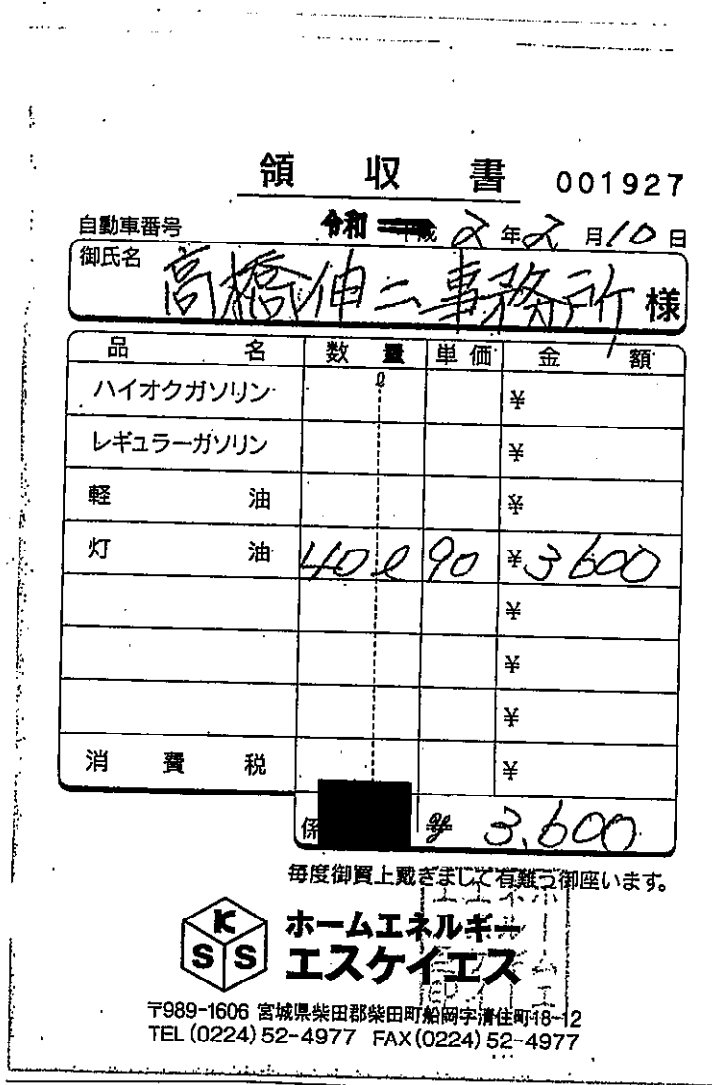 領収書 001927
自動車番号 令和 2年2月10日
御氏名 高橋伸二事務所 様
品名 数量 単価 金額
ℓ
ハイオクガソリン ¥
レギュラーガソリン ¥
軽油 ¥
灯油 40ℓ 90 ¥3600
¥
¥
¥
消費税 ¥
係 3,600
毎度御買上戴きまして有難う御座います。
KSS
ホームエネルギー
エスケイエス
〒989-1606 宮城県柴田郡柴田町船岡字清住町18-12
TEL(0224)52-4977 FAX(0224)52-4977